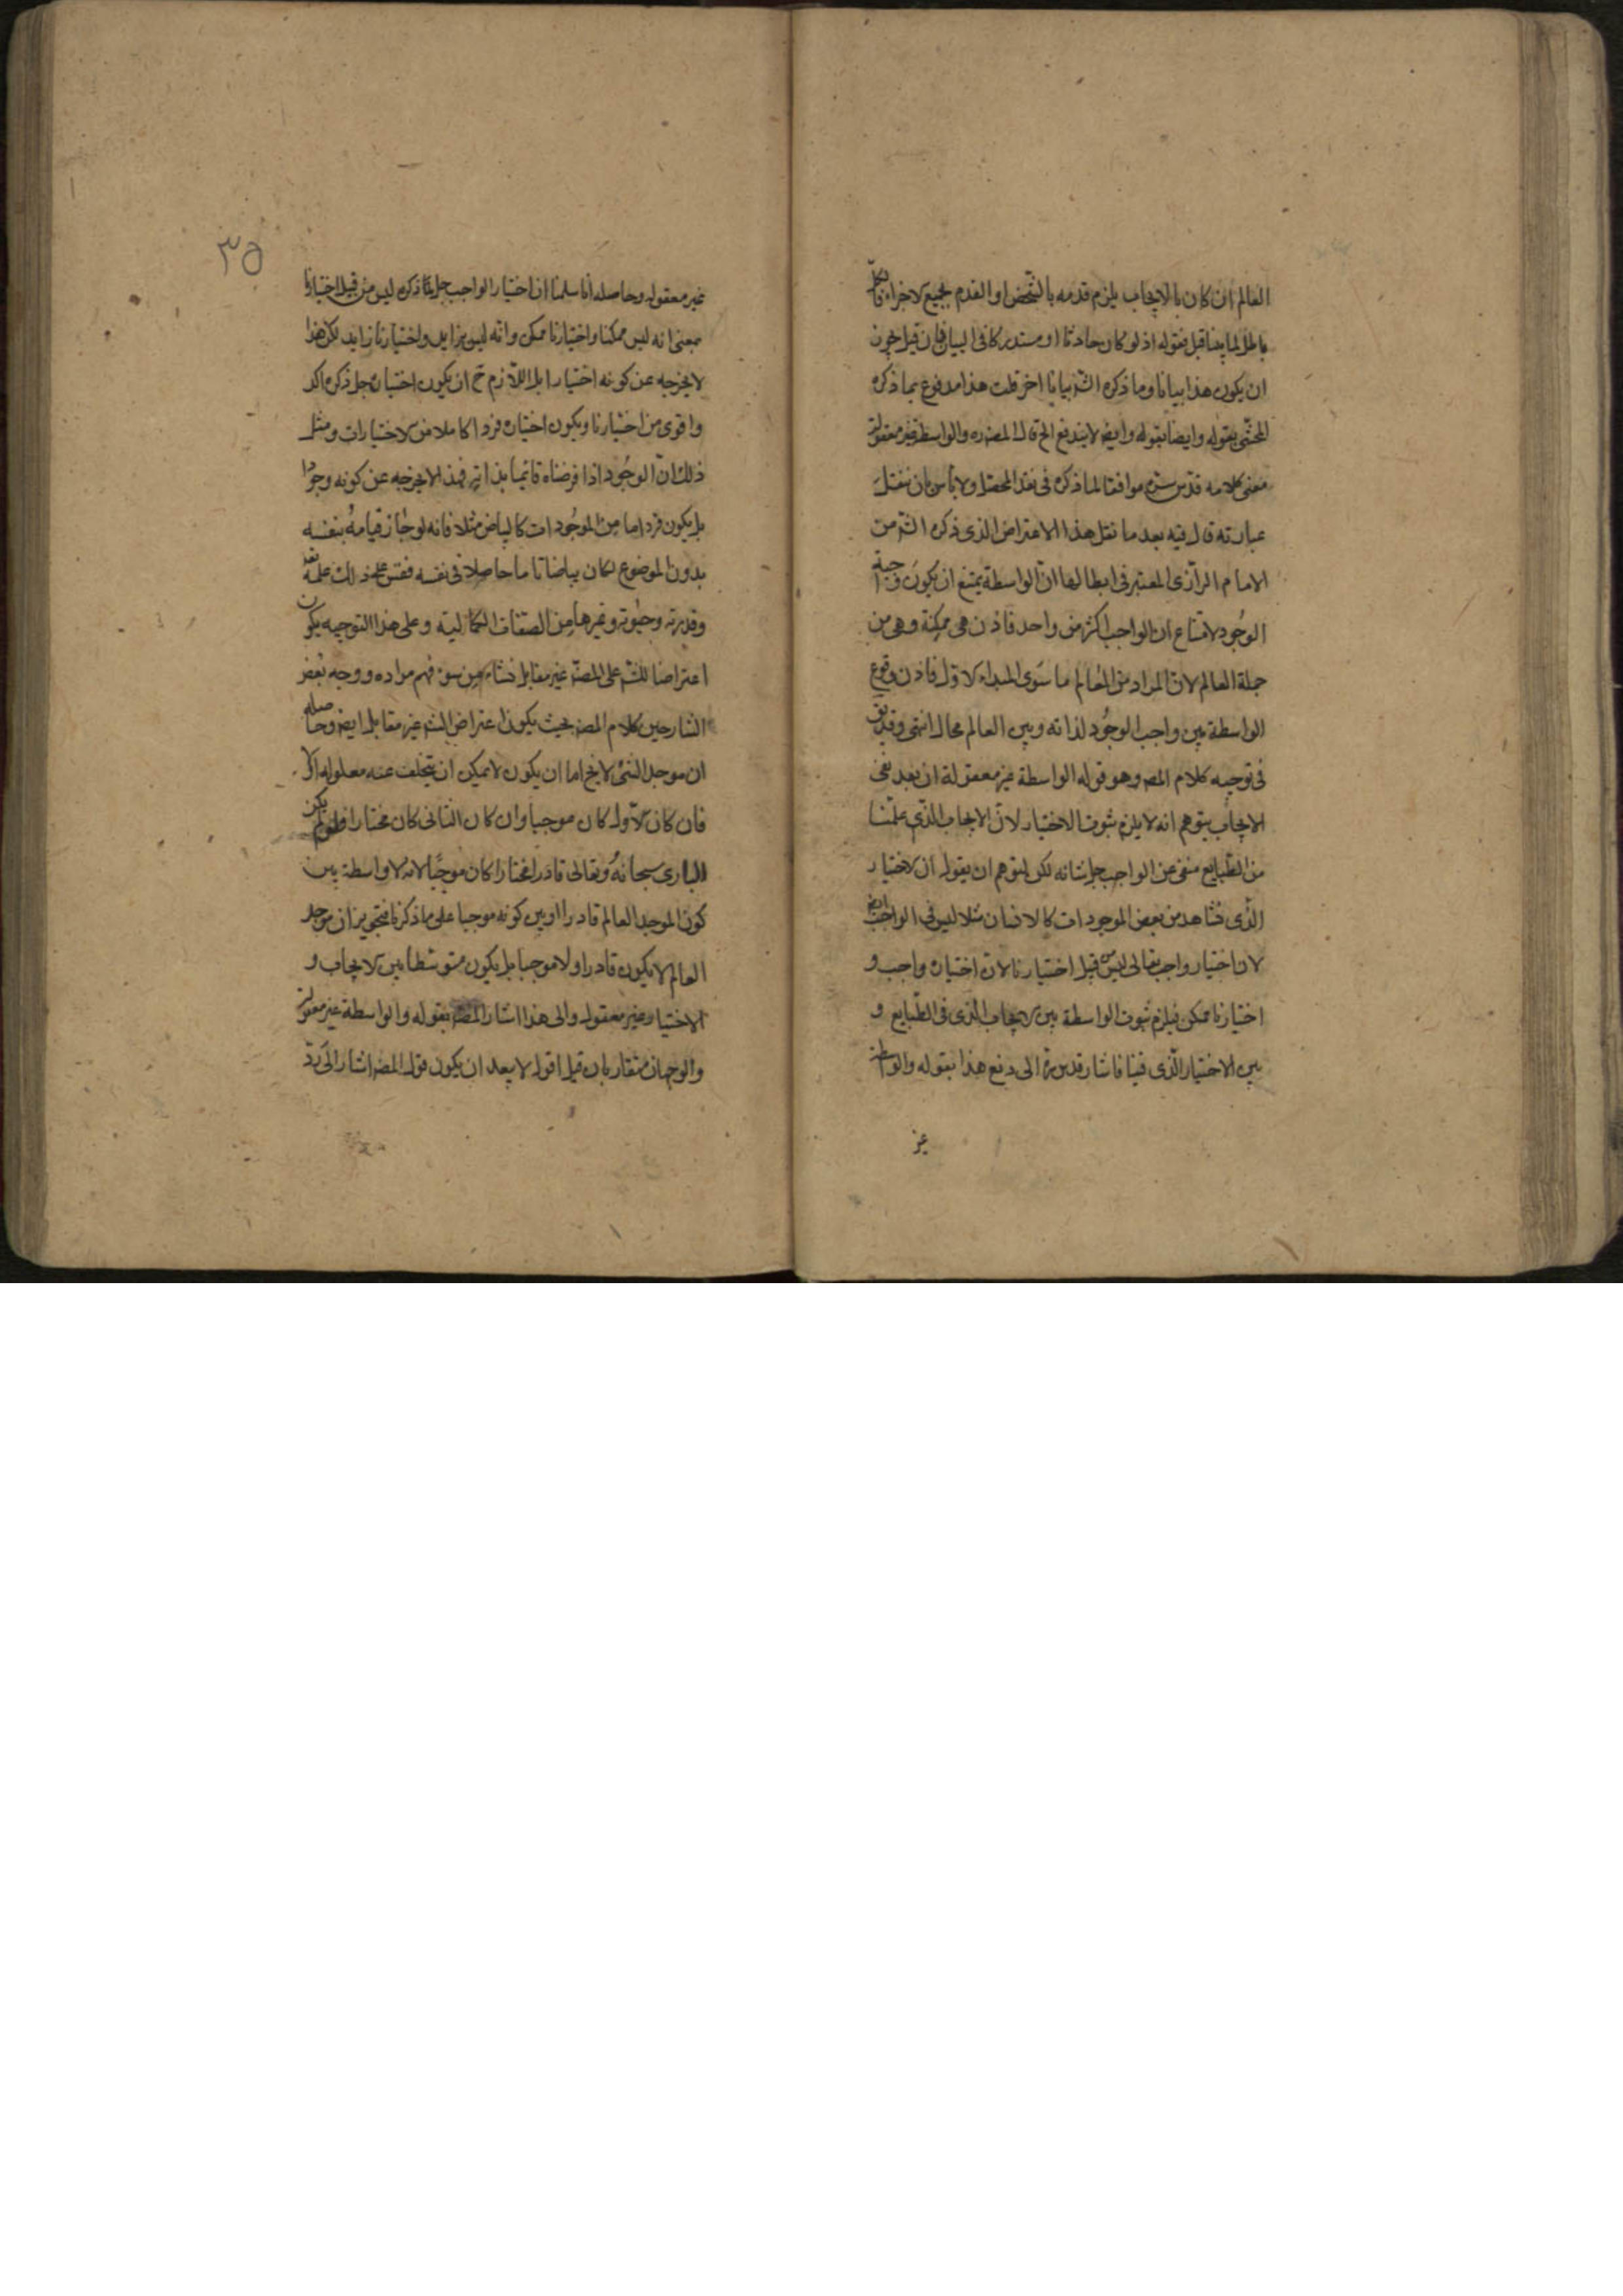 العالم ان كان بالايجاب يلزم قدمه بالشخص او القدم لجميع الاجزاء
باطل لما بينا قبل فقوله اذ لو كان حادثا او مستدركا فى البيان فان قيل يجوز
ان يكون هذا بيانا وما ذكره الش بيانا اخر قلت هذا مدفوع بما ذكره
المحشى بقوله وايضا بقوله وايض لا يندفع الخ قال المص ره والواسطة غير معقولة
معنى كلامه قدس سره موافقا لما ذكره فى نقد المحصل ولا بأس بان ننقل
عبارته قال فيه بعد ما نقل هذا الاعتراض الذى ذكره الش من
الامام الرازى المعتبر فى ابطالها ان الواسطة يمتنع ان يكون واجبة
الوجود لامتناع ان الواجب اكثر من واحد فاذن هى ممكنة وهى من
جملة العالم لان المراد من العالم ما سوى المبداء الاول فاذن وقوع
الواسطة بين واجب الوجود لذاته وبين العالم محال انتهى وقد يق
فى توجيه كلام المص وهو قوله الواسطة غير معقولة ان بعد نفى
الايجاب يتوهم انه لا يلزم ثبوت الاختيار لان الايجاب الذى علمنا
من الطبايع منفى عن الواجب جل شانه لكن لمتوهم ان يقول ان الاختيار
الذى نشاهد من بعض الموجودات كالانسان مثلا ليس فى الواجب ايض
لان اختيار واجب تعالى ليس من قبيل اختيارنا لان اختياره واجب و
اختيارنا ممكن فيلزم ثبوت الواسطة بين الايجاب الذى فى الطبايع و
بين الاختيار الذى فينا فاشار قدس سره الى دفع هذا بقوله والواسطة
غير
٣٥
غير معقولة وحاصله انا سلمنا ان اختيار الواجب جل ذكره ليس من قبيل اختيارنا
بمعنى انه ليس ممكنا واختيارنا ممكن وانه ليس بزايد واختيارنا زايد لكن هذا
لا يخرجه عن كونه اختيارا بل اللازم ح ان يكون اختياره جل ذكره اكد
واقوى من اختيارنا ويكون اختياره فردا كاملا من الاختيارات ومثل
ذلك ان الوجود اذا فرضناه قائما بذاته فهذا لا يخرجه عن كونه وجودا
بل يكون فردا ما من الموجودات كالبياض مثلا فانه لو جاز قيامه بنفسه
بدون الموضوع لكان بياضا تاما حاصلا فى نفسه فقس على ذلك علمه تعه
وقدرته وحيوته وغيرها من الصفات الكمالية وعلى هذا التوجيه يكون
اعتراضا للش على المص غير مقابل نشاء من سوء فهم مراده ووجه بعض
الشارحين كلام المص بحيث يكون اعتراض الش غير مقابل ايض وحاصله
ان موجد الشئ لا يخ اما ان يكون لا يمكن ان يتخلف عنه معلوله او لا
فان كان الاول كان موجبا وان كان الثانى كان مختارا فلو لم يكن
البارى سبحانه وتعالى قادرا مختارا كان موجبا لانه لا واسطة بين
كون الموجد العالم قادرا وبين كونه موجبا على ما ذكرنا فتجويز ان موجد
العالم لا يكون قادرا ولا موجبا بل يكون متوسطا بين الايجاب و
الاختيار غير معقول والى هذا اشار المص بقوله والواسطة غير معقولة
والوجهان متقاربان قيل اقول لا يبعد ان يكون قول المص اشار الى رد